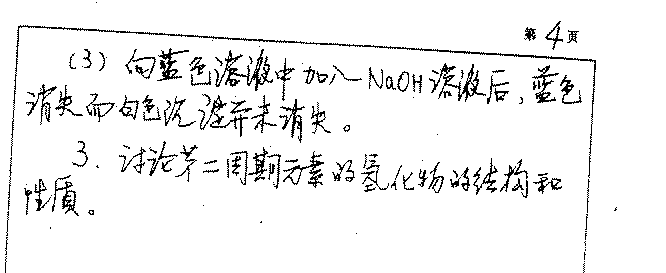 第4页
(3) 向蓝色溶液中加入NaOH溶液后，蓝色
消失而白色沉淀并未消失。
3. 讨论第二周期元素的氢化物的结构和
性质。